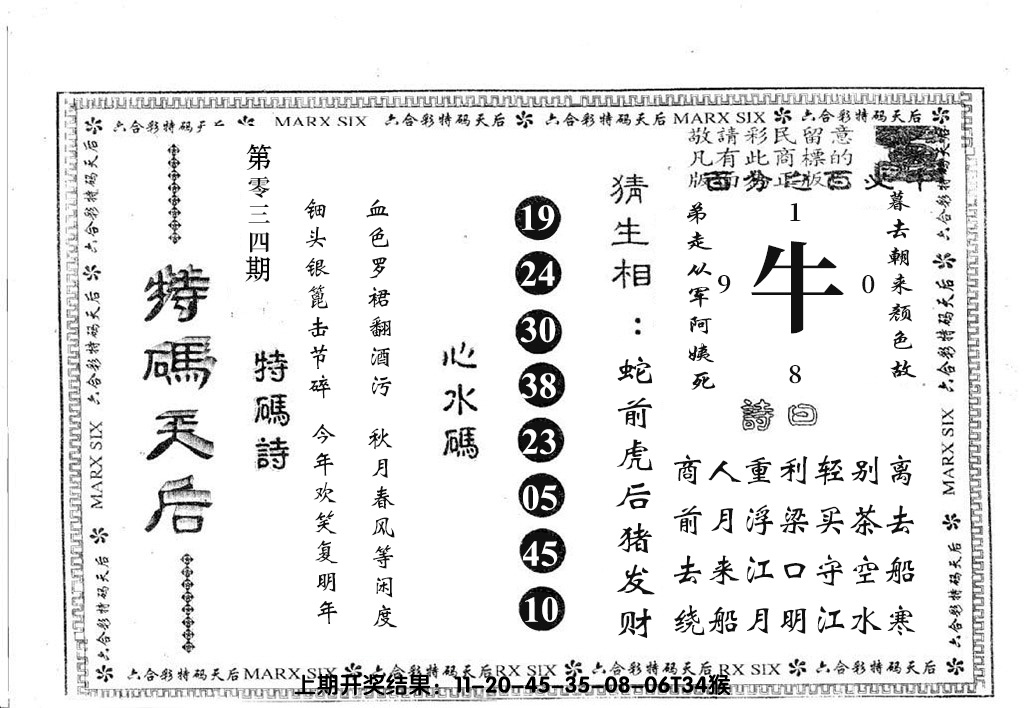 六合彩特码 MARX SIX 六合彩特码天后 六合彩特码天后 MARX SIX 六合彩特码天后
敬請彩民留意
凡有此商標的
版面为正版
暮去朝来颜色故
1
9 牛 0
8
弟走从军阿姨死
詩曰
离去船寒
别茶空水
轻买守江
利梁口明
重浮江月
人月来船
商前去绕
猜生相：蛇前虎后猪发财
19
24
30
38
23
05
45
10
心水碼
血色罗裙翻酒污 秋月春风等闲度
钿头银篦击节碎 今年欢笑复明年
第零三四期
特碼詩
特碼天后
六合彩特码天后 六合彩特码天后 MARX SIX 六合彩特码天后
六合彩特码天后 六合彩特码天后 MARX SIX 六合彩特码天后
六合彩特码天后 MARX SIX 六合彩特码天后 RX SIX 六合彩特码天后 RX SIX 六合彩特码天后
上期开奖结果：11-20-45-35-08-06T34猴